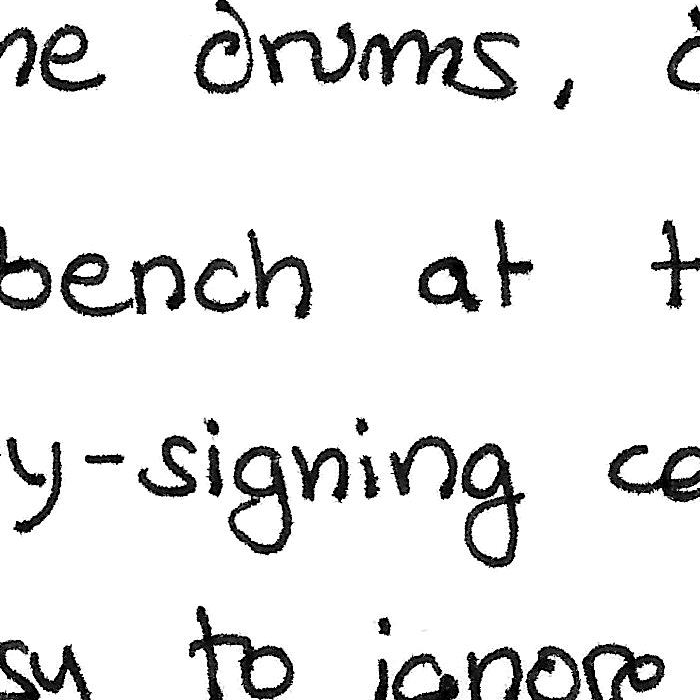 he drums,
bench at t
y-signing ce
sy to ignore